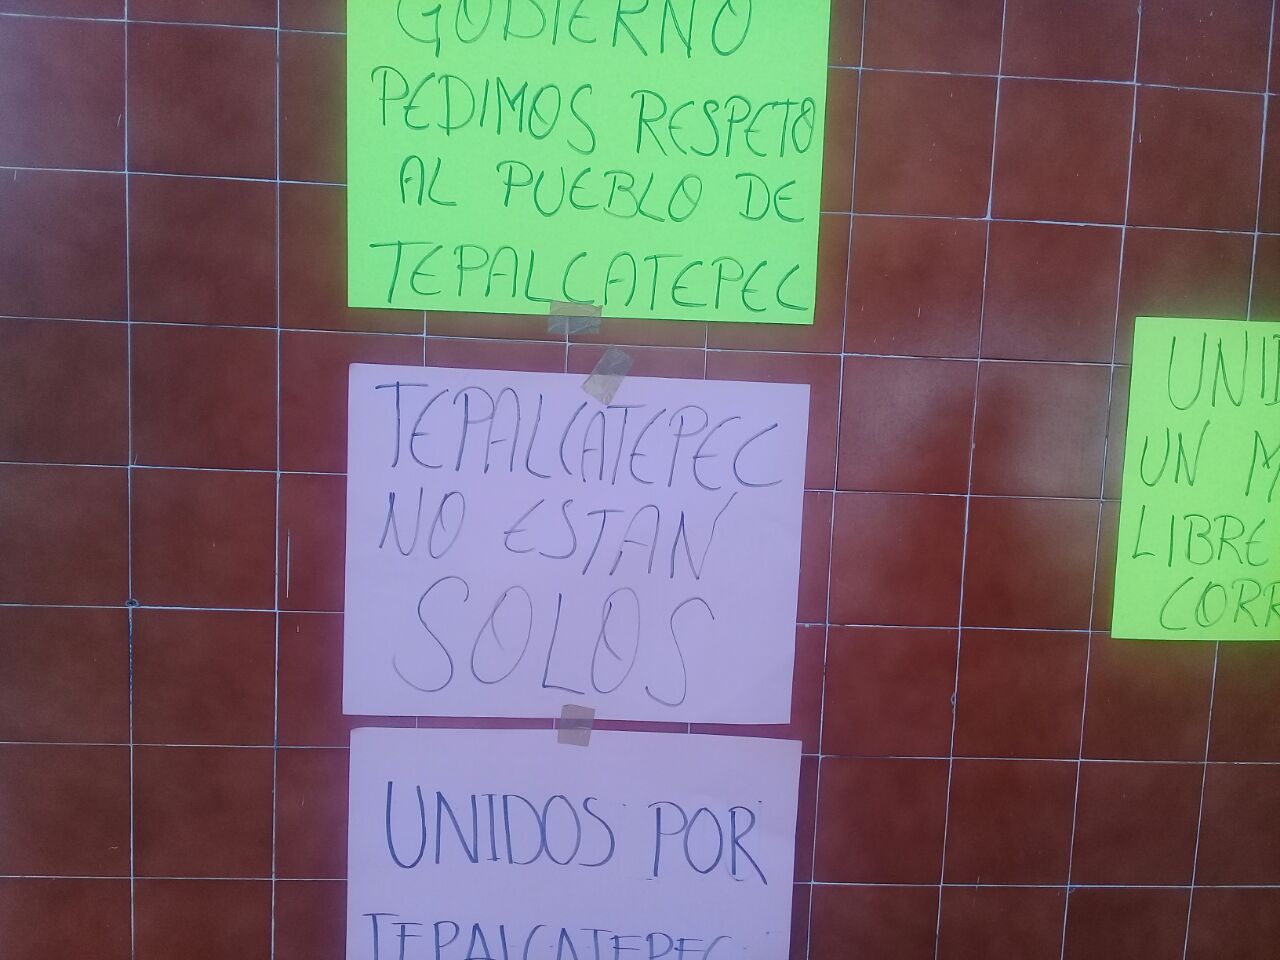 GOBIERNO
PEDIMOS RESPETO
AL PUEBLO DE
TEPALCATEPEC
TEPALCATEPEC
NO ESTÁN
SOLOS
UNIDOS POR
TEPALCATEPEC
UN
LIBRE